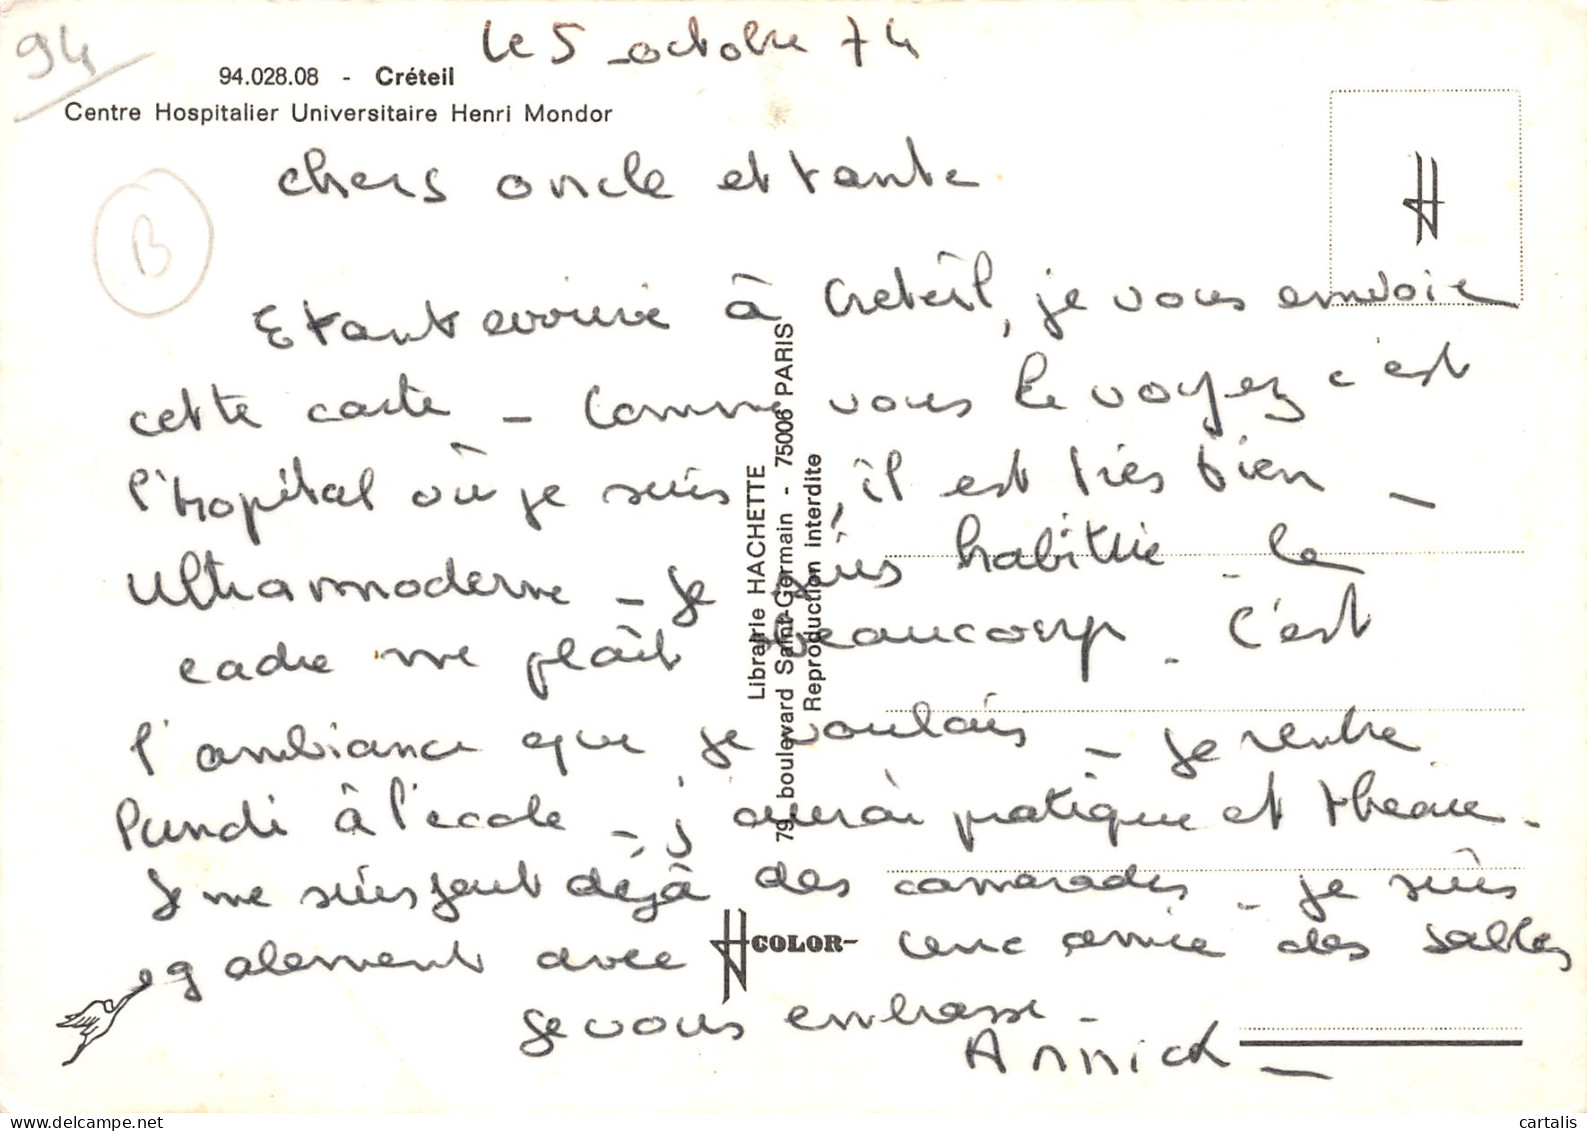 94
le 5 octobre 74
94.028.08 - Créteil
Centre Hospitalier Universitaire Henri Mondor
B
chers oncle et tante
Etant arrivée à Créteil, je vous envoie
cette carte - Comme vous le voyez c'est
l'hopital où je suis, il est très bien -
Ultramoderne - je suis habituée - le
cadre me plaît beaucoup - C'est
l'ambiance que je voulais - je rentre
lundi à l'école - j'aurai pratique et théorie -
Je me suis fait déjà des camarades - je suis
egalement avec une amie des sables
je vous embrasse -
Annick
Librairie HACHETTE
79, boulevard Saint-Germain - 75006 PARIS
Reproduction interdite
COLOR
cartalis